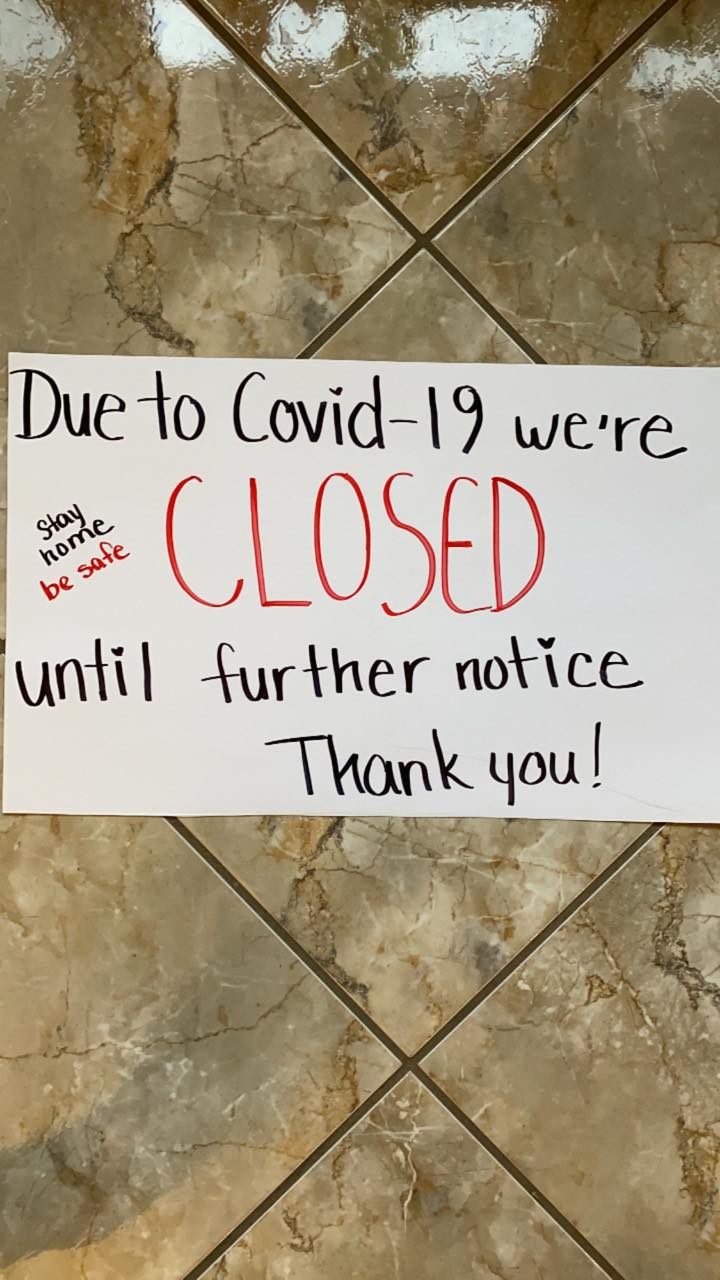 Due to Covid-19 we're
CLOSED
stay
home
be safe
until further notice
Thank you!